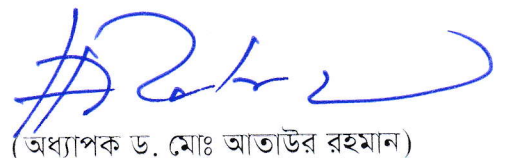 (অধ্যাপক ড. মোঃ আতাউর রহমান)